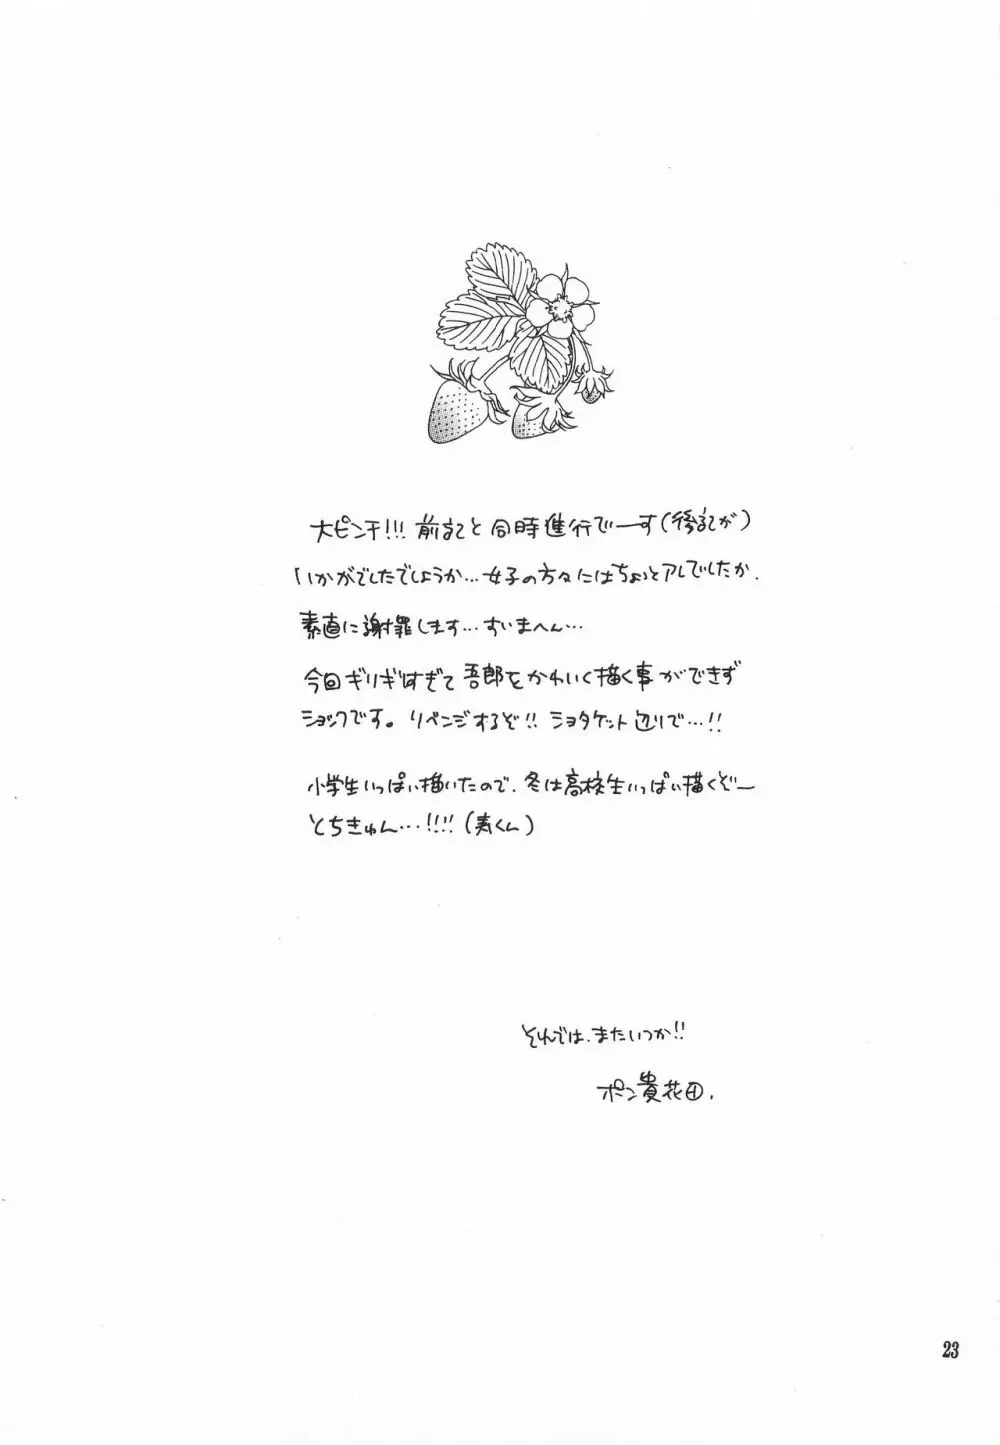 大ピンチ!!! 前記と同時進行でーす(後記が)
いかがでしたでしょうか…女子の方々にはちょっとアレでしたか.
素直に謝罪します…すいまへん…
今回ギリギリすぎて吾郎をかわいく描く事ができず
ショックです。リベンジするぞ!! ショタケット辺りで…!!
小学生いっぱい描いたので、冬は高校生いっぱい描くぞー
とちきゅん…!!!!(寿くん)
それでは、またいつか!!
ポン貴花田.
23